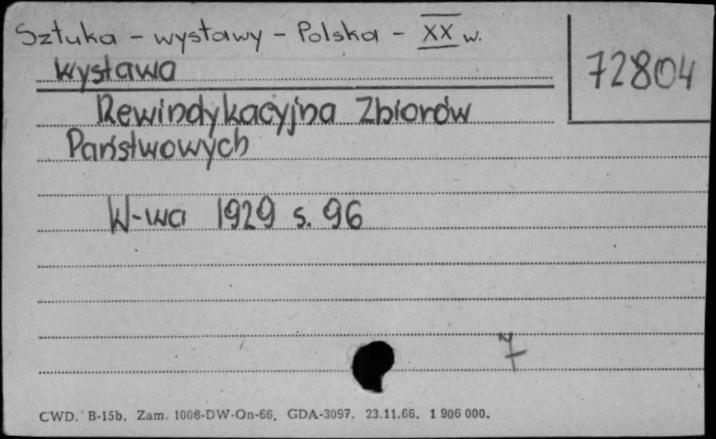 Sztuka - wystawy - Polska - XX w.
72804
Wystawa
Rewindykacyjna Zbiorów
Państwowych
W-wa 1929 s. 96
7
CWD. B-15b. Zam. 1008-DW-On-66. GDA-3097. 23.11.66. 1 906 000.